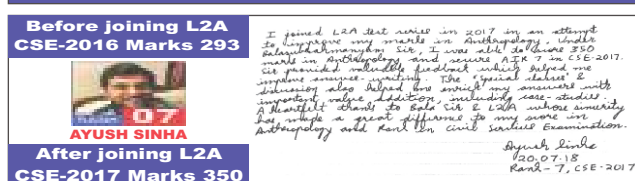 Before joining L2A
CSE-2016 Marks 293
07
AYUSH SINHA
After joining L2A
CSE-2017 Marks 350
I joined L2A test series in 2017 in an attempt
to improve my marks in Anthropology. Under
Balasubharmanyam Sir, I was able to score 350
marks in Anthropology and secure AIR 7 in CSE-2017.
Sir provided valuable feedback which helped me
improve answer-writing. The 'special classes' &
discussion also helped me enrich my answers with
important value addition, including case-studies.
A heartfelt thanks to Bala Sir & L2A whose sincerity
has made a great difference to my score in
Anthropology and Rank in Civil Services Examination.
Ayush Sinha
20.07.18
Rank-7, CSE-2017